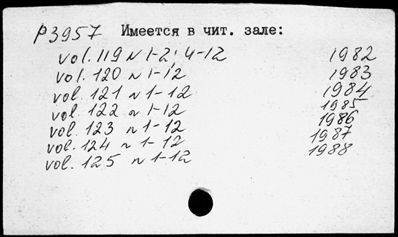 P3957 Имеется в чит. зале:
vol. 119 N 1-2; 4-12 1982
vol. 120 N 1-12 1983
vol. 121 N 1-12 1984
vol. 122 N 1-12 1985
vol. 123 N 1-12 1986
vol. 124 N 1-12 1987
vol. 125 N 1-12 1988